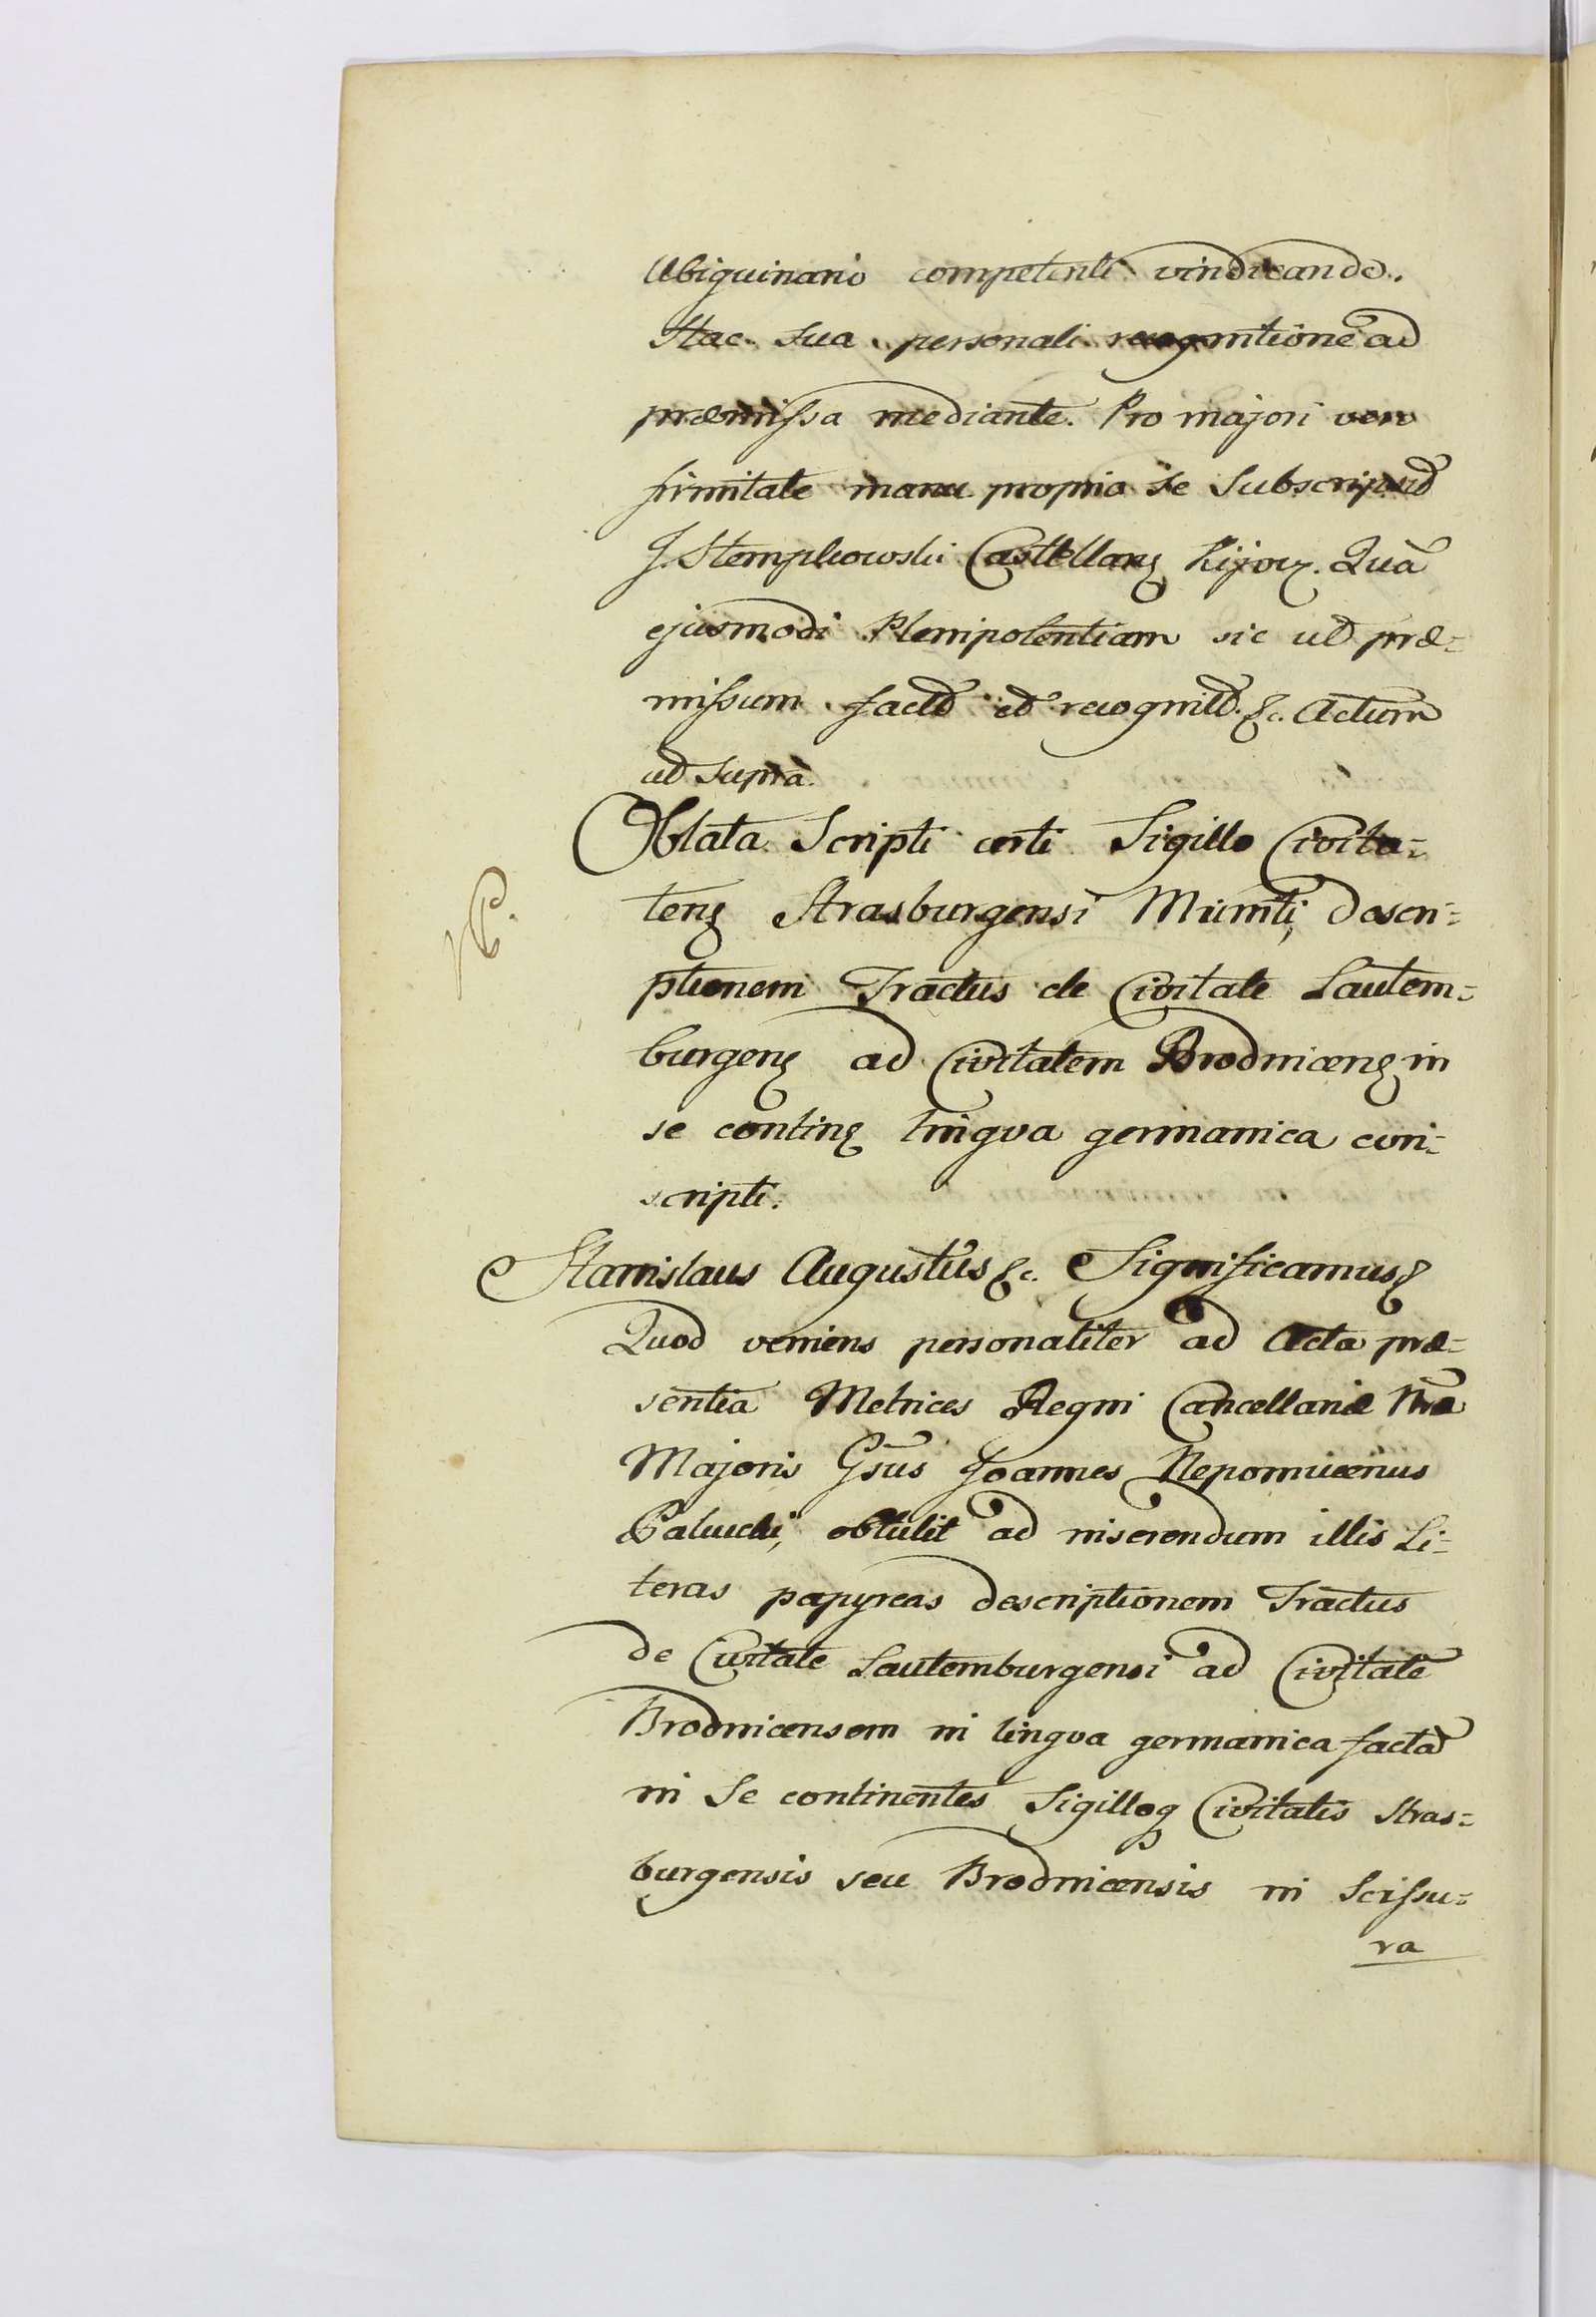 Ubiquinario competenti vindicando.
Hac sua personali recognitione ad
præmissa mediante. Pro majori vero
firmitate manu propria se Subscripsit
J. Stempkowski Castellanȩ Kijow. Quã
ejusmodi Plenipotentiam sic ut præ=
missum fact et recognit &c. Actum
ut Supra.
Oblata Scripti certi Sigillo Civita=
tenȩ Strasburgensi Muniti, descri=
ptionem Tractus de Civitate Lautem=
burgenȩ ad Civitatem Brodnicenȩ in
se continȩ lingva germanica con=
scripti.
Stanislaus Augustus &c. Significamus &
Quod veniens personaliter ad Acta præ=
sentia Metrices Regni Cancellariæ Nræ
Majoris Gsus Joannes Nepomucenus
Palucki, obtulit ad inserendum illis Li=
teras papyreas descriptionem Tractus
de Civitate Lautemburgensi ad Civitatẽ
Brodnicensem in lingva germanica factã
in Se continentes Sigilloq Civitatis Stras=
burgensis seu Brodnicensis in Scissu=
ra